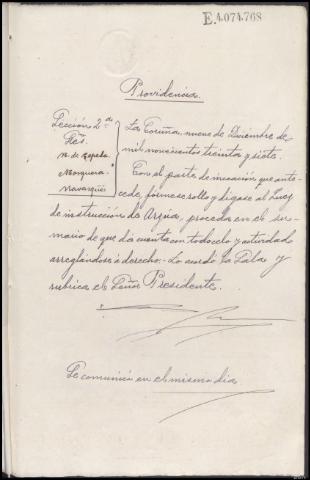 E.4.074.768
Providencia.
Sección 2.ª
Sres.
M. de Zepeda
Mosquera
Navarqüés
La Coruña, nueve de Diciembre de
mil novecientos treinta y siete.
Con el parte de incoación que ante-
cede, fórmese rollo y dígase al Juez
de instrucción de Arzúa, proceda en el su-
mario de que dá cuenta con todo celo y actividad
arreglándose á derecho.- Lo acordó la Sala y
rubrica el Señor Presidente.
Se comunicó en el mismo dia